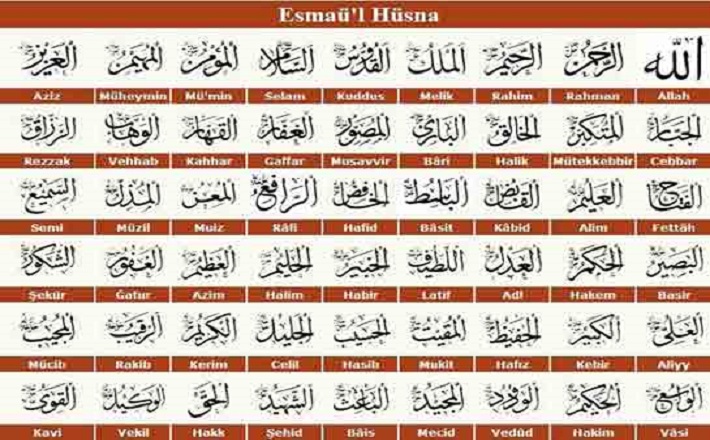 Esmaü'l Hüsna
الله الرحمن الرحيم الملك القدوس السلام المؤمن المهيمن العزيز
Aziz Müheymin Mü'min Selam Kuddus Melik Rahim Rahman Allah
الجبار المتكبر الخالق البارئ المصور الغفار القهار الوهاب الرزاق
Rezzak Vehhab Kahhar Gaffar Musavvir Bâri Halik Mütekkebbir Cebbar
الفتاح العليم القابض الباسط الخافض الرافع المعز المذل السميع
Semi Müzil Muiz Râfi Hafid Bâsit Kâbid Alim Fettâh
البصير الحكم العدل اللطيف الخبير الحليم العظيم الغفور الشكور
Şekür Gafur Azim Halim Habir Latif Adl Hakem Basir
العلي الكبير الحفيظ المقيت الحسيب الجليل الكريم الرقيب المجيب
Mücib Rakib Kerim Celil Hasib Mukit Hafız Kebir Aliyy
الواسع الحكيم الودود المجيد الباعث الشهيد الحق الوكيل القوي
Kavi Vekil Hakk Şehid Bâis Mecid Vedûd Hakim Vâsi